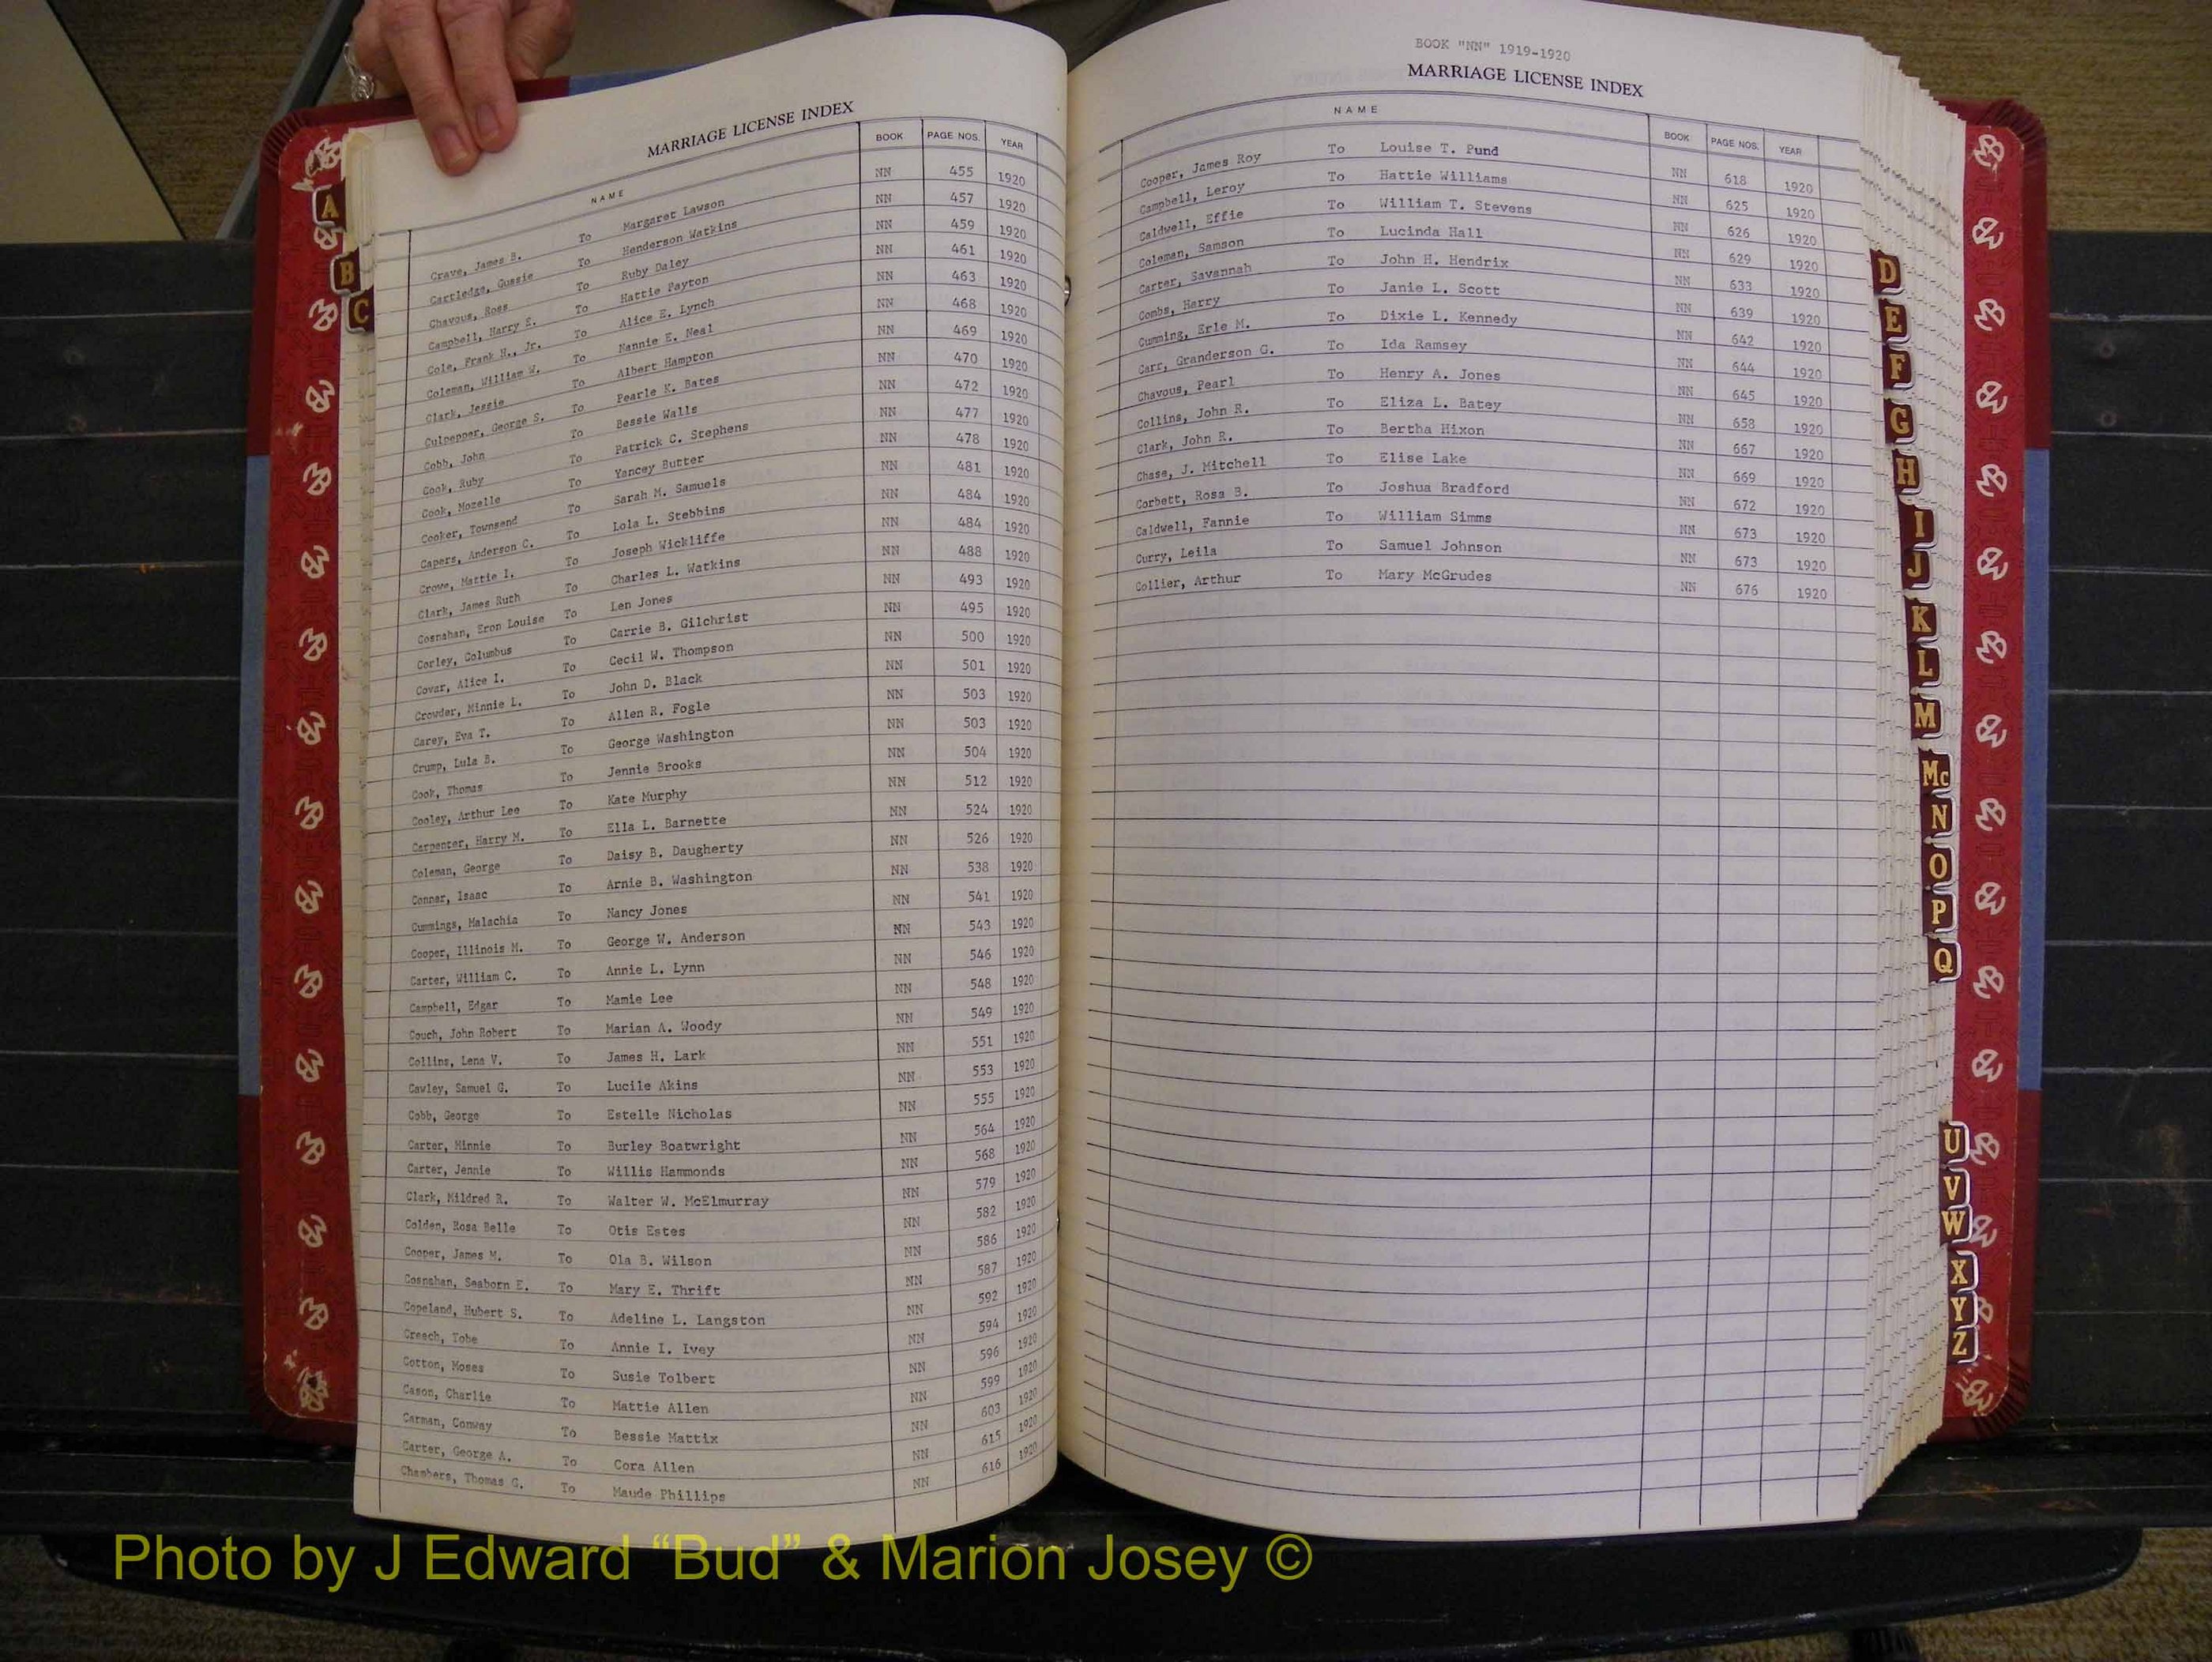 MARRIAGE LICENSE INDEX
NAME BOOK PAGE NOS. YEAR
Crave, James B. To Margaret Lawson NN 455 1920
Cartledge, Gussie To Henderson Watkins NN 457 1920
Chavous, Ross To Ruby Daley NN 459 1920
Campbell, Harry E. To Hattie Payton NN 461 1920
Cole, Frank H., Jr. To Alice E. Lynch NN 463 1920
Coleman, William W. To Nannie E. Neal NN 468 1920
Clark, Jessie To Albert Hampton NN 469 1920
Culpepper, George S. To Pearle K. Bates NN 470 1920
Cobb, John To Bessie Walls NN 472 1920
Cook, Ruby To Patrick C. Stephens NN 477 1920
Cook, Mozelle To Yancey Butter NN 478 1920
Cooker, Townsend To Sarah M. Samuels NN 481 1920
Capers, Anderson C. To Lola L. Stebbins NN 484 1920
Crowe, Mattie I. To Joseph Wickliffe NN 484 1920
Clark, James Ruth To Charles L. Watkins NN 488 1920
Cosnahan, Eron Louise To Len Jones NN 493 1920
Corley, Columbus To Carrie B. Gilchrist NN 495 1920
Covar, Alice I. To Cecil W. Thompson NN 500 1920
Crowder, Minnie L. To John D. Black NN 501 1920
Carey, Eva T. To Allen R. Fogle NN 503 1920
Crump, Lula B. To George Washington NN 503 1920
Cook, Thomas To Jennie Brooks NN 504 1920
Cooley, Arthur Lee To Kate Murphy NN 512 1920
Carpenter, Harry M. To Ella L. Barnette NN 524 1920
Coleman, George To Daisy B. Daugherty NN 526 1920
Conner, Isaac To Arnie B. Washington NN 538 1920
Cummings, Malachia To Nancy Jones NN 541 1920
Cooper, Illinois M. To George W. Anderson NN 543 1920
Carter, William C. To Annie L. Lynn NN 546 1920
Campbell, Edgar To Mamie Lee NN 548 1920
Couch, John Robert To Marian A. Woody NN 549 1920
Collins, Lena V. To James H. Lark NN 551 1920
Cawley, Samuel G. To Lucile Akins NN 553 1920
Cobb, George To Estelle Nicholas NN 555 1920
Carter, Minnie To Burley Boatwright NN 564 1920
Carter, Jennie To Willis Hammonds NN 568 1920
Clark, Mildred R. To Walter W. McElmurray NN 579 1920
Colden, Rosa Belle To Otis Estes NN 582 1920
Cooper, James M. To Ola B. Wilson NN 586 1920
Cosnahan, Seaborn E. To Mary E. Thrift NN 587 1920
Copeland, Hubert S. To Adeline L. Langston NN 592 1920
Creech, Tobe To Annie I. Ivey NN 594 1920
Cotton, Moses To Susie Tolbert NN 596 1920
Cason, Charlie To Mattie Allen NN 599 1920
Carman, Conway To Bessie Mattix NN 603 1920
Carter, George A. To Cora Allen NN 615 1920
Chambers, Thomas G. To Maude Phillips NN 616 1920
BOOK "NN" 1919-1920
MARRIAGE LICENSE INDEX
NAME BOOK PAGE NOS. YEAR
Cooper, James Roy To Louise T. Pund NN 618 1920
Campbell, Leroy To Hattie Williams NN 625 1920
Caldwell, Effie To William T. Stevens NN 626 1920
Coleman, Samson To Lucinda Hall NN 629 1920
Carter, Savannah To John H. Hendrix NN 633 1920
Combs, Harry To Janie L. Scott NN 639 1920
Cumming, Erle M. To Dixie L. Kennedy NN 642 1920
Carr, Granderson G. To Ida Ramsey NN 644 1920
Chavous, Pearl To Henry A. Jones NN 645 1920
Collins, John R. To Eliza L. Batey NN 658 1920
Clark, John R. To Bertha Hixon NN 667 1920
Chase, J. Mitchell To Elise Lake NN 669 1920
Corbett, Rosa B. To Joshua Bradford NN 672 1920
Caldwell, Fannie To William Simms NN 673 1920
Curry, Leila To Samuel Johnson NN 673 1920
Collier, Arthur To Mary McGrudes NN 676 1920
A
B
C
D
E
F
G
H
I
J
K
L
M
Mc
N
O
P
Q
U
V
W
X
Y
Z
Photo by J Edward “Bud” & Marion Josey ©